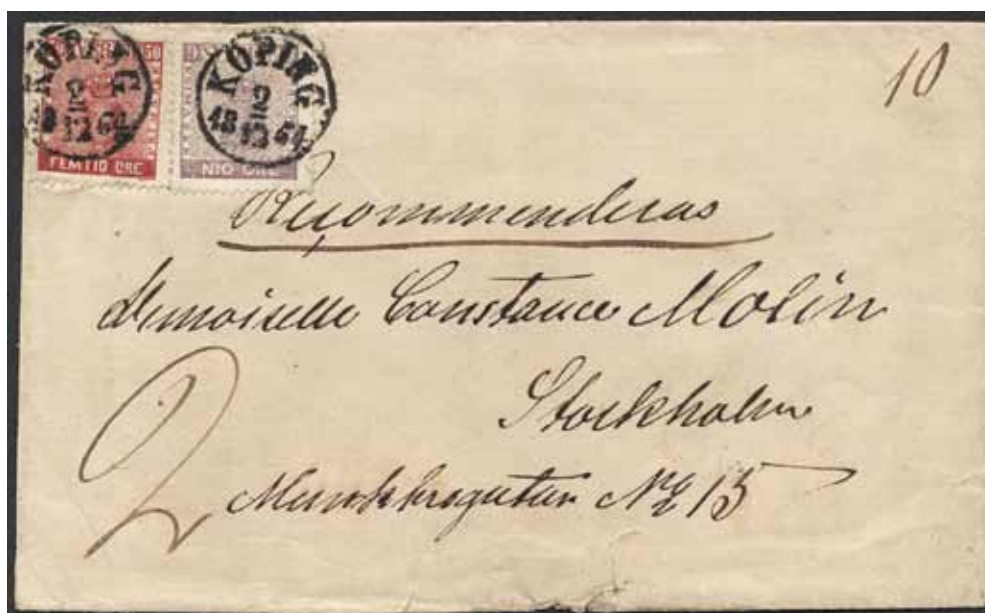 50
KÖPING
2
12
18 64
FEMTIO ÖRE
KÖPING
2
12
18 64
NIO ÖRE
10
Recommenderas
Demoiselle Constance Molin
Stockholm
2
Munkbrogatan No 15